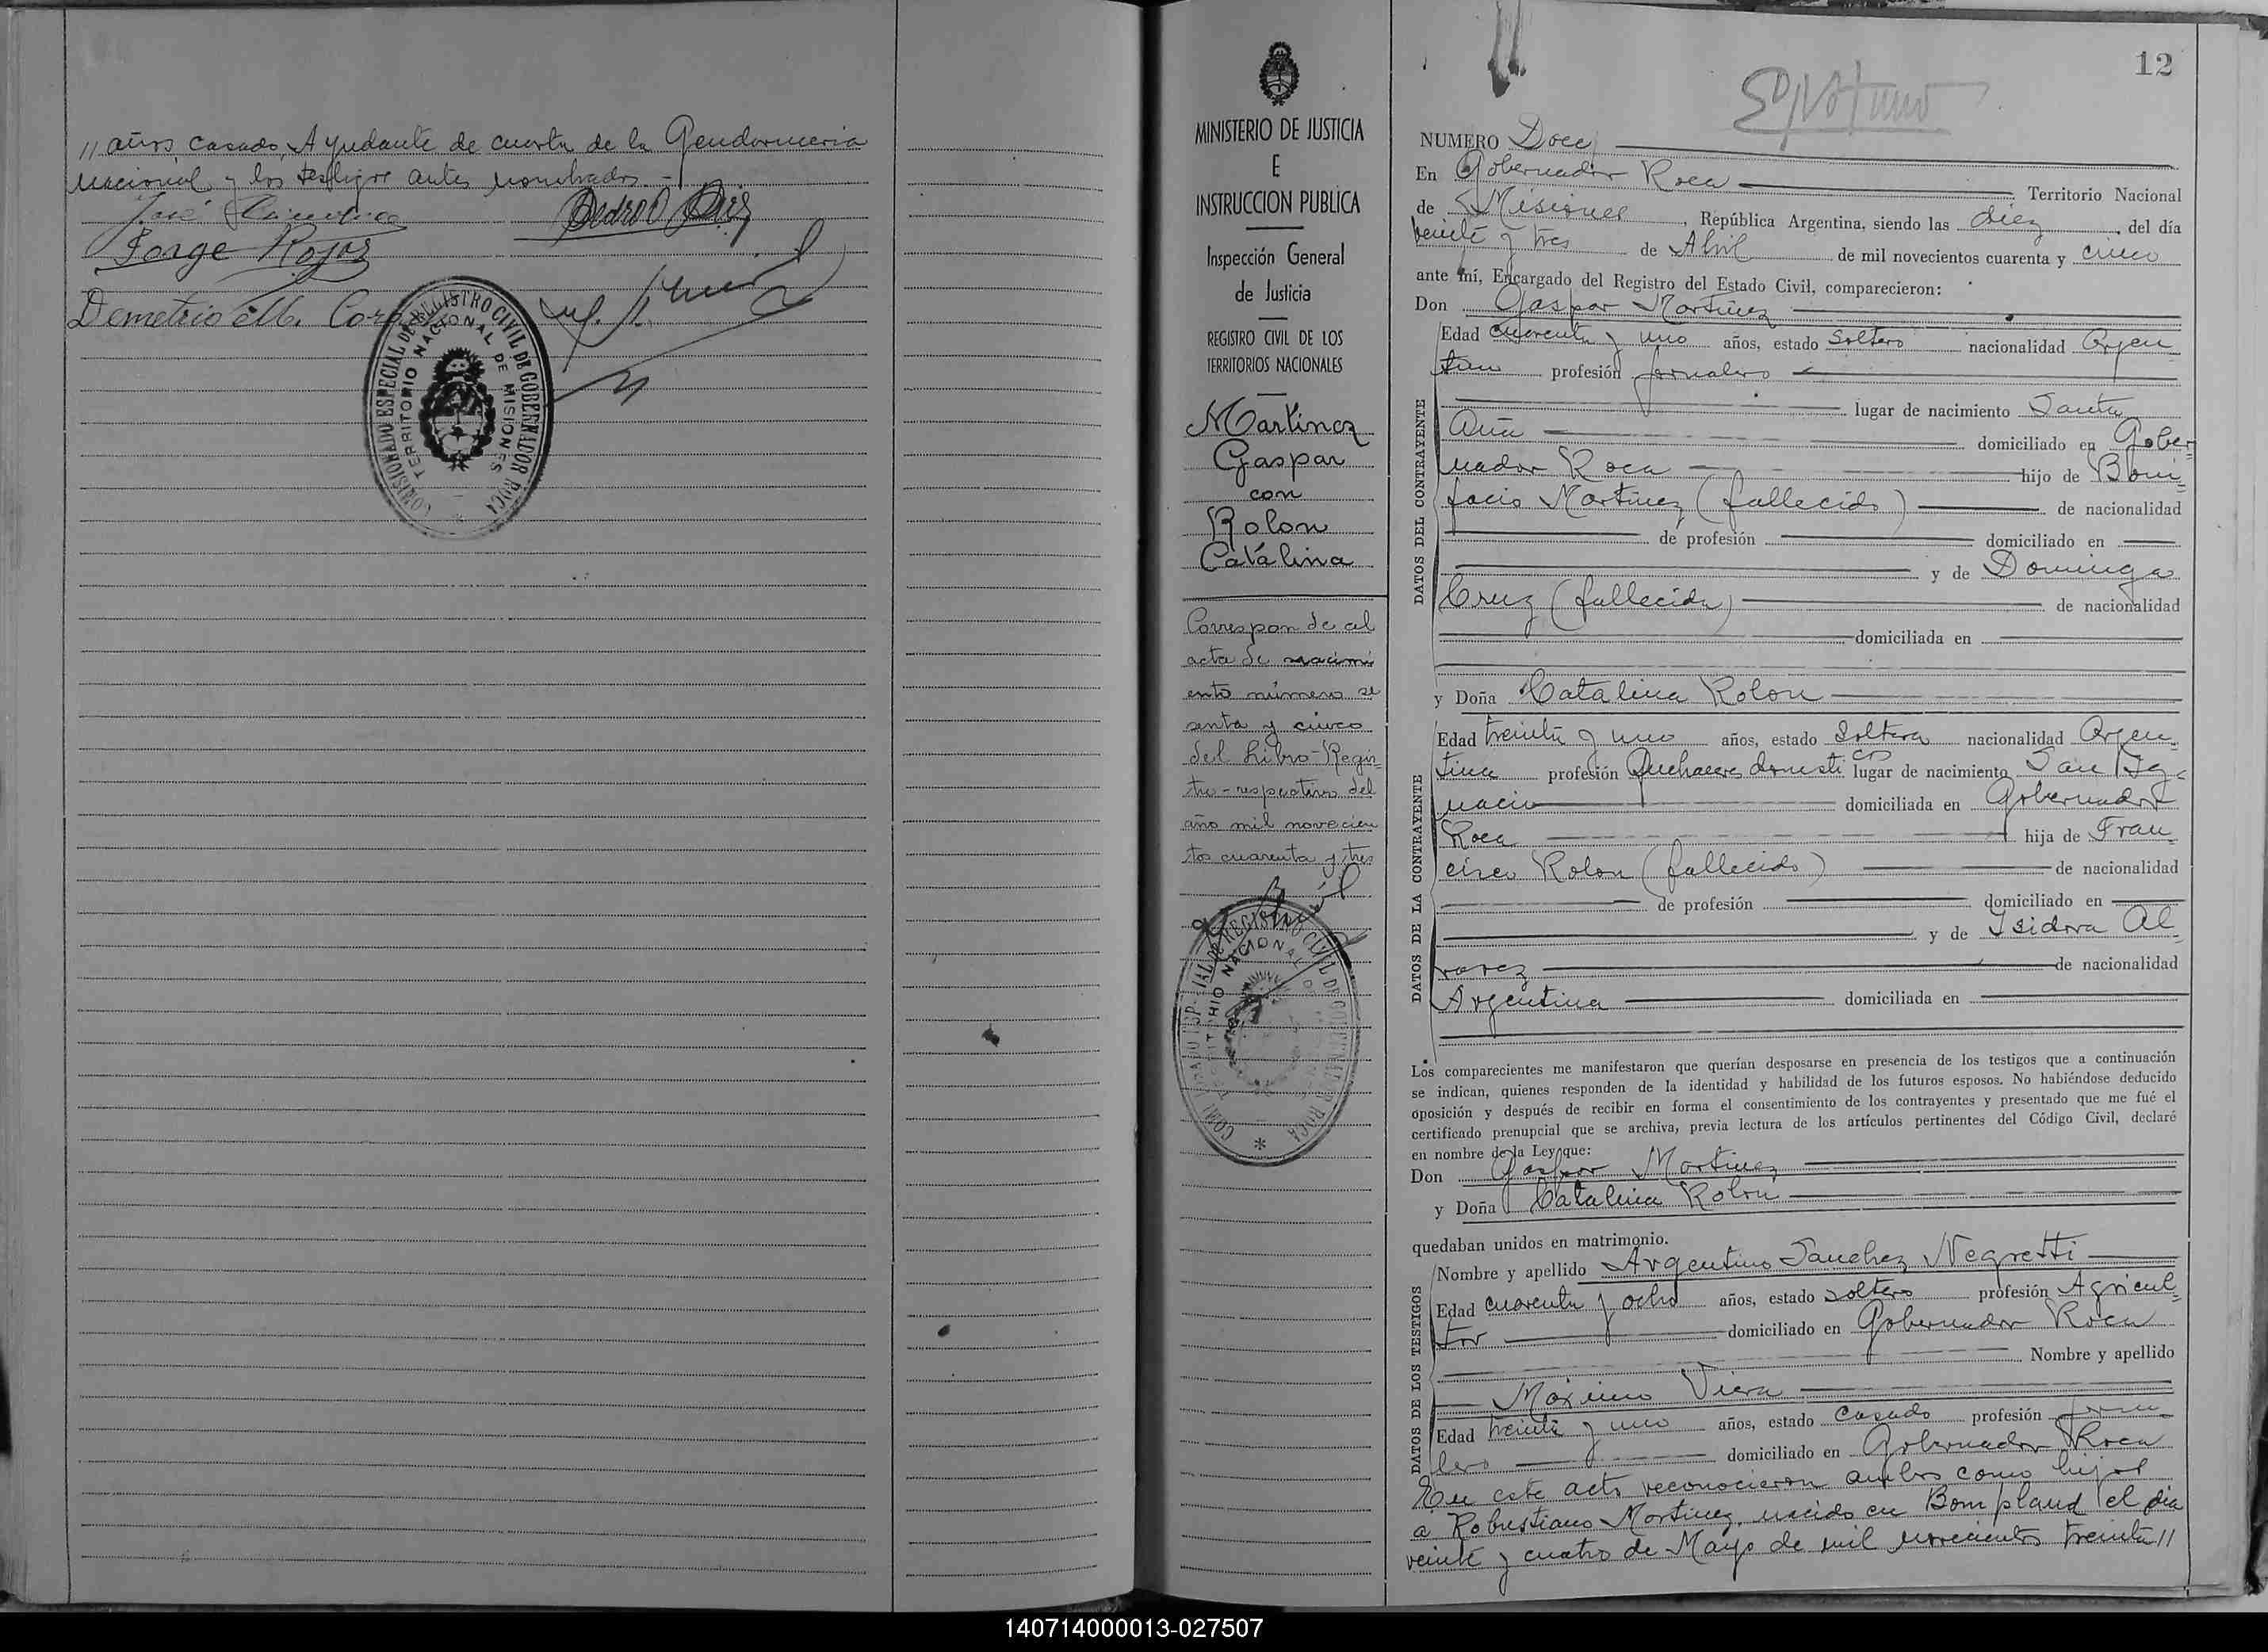 11 años, casado, Ayudante de cuarta de la Gendarmeria
Nacional y los testigos antes nombrados.-
José
Jorge Rojas
Demetrio M.
COMISIONADO ESPECIAL DE REGISTRO CIVIL DE GOBERNADOR ROCA
TERRITORIO NACIONAL DE MISIONES
MINISTERIO DE JUSTICIA
E
INSTRUCCION PUBLICA
Inspección General
de Justicia
REGISTRO CIVIL DE LOS
TERRITORIOS NACIONALES
Martinez
Gaspar
con
Rolon
Catalina
Corresponde al
acta de nacimi
ento número se
senta y cinco
del Libro-Regis=
tro-respectivo del
año mil novecien
tos cuarenta y tres
12
NUMERO Doce
En Gobernador Roca Territorio Nacional
de Misiones, República Argentina, siendo las diez del día
veinte y tres de Abril de mil novecientos cuarenta y cinco
ante mí, Encargado del Registro del Estado Civil, comparecieron:
Don Gaspar Martinez
DATOS DEL CONTRAYENTE
Edad cuarenta y uno años, estado soltero nacionalidad Argen
tino profesión jornalero
lugar de nacimiento Santa
Ana domiciliado en Gober=
nador Roca hijo de Boni=
facio Martinez (fallecido) de nacionalidad
de profesión domiciliado en
y de Dominga
Cruz (fallecida) de nacionalidad
domiciliada en
y Doña Catalina Rolon
DATOS DE LA CONTRAYENTE
Edad treinta y uno años, estado soltera nacionalidad Argen=
tina profesión Quehaceres domesticos lugar de nacimiento San Ig=
nacio domiciliada en Gobernador
Roca hija de Fran=
cisco Rolon (fallecido) de nacionalidad
de profesión domiciliado en
y de Isidora Al
varez de nacionalidad
Argentina domiciliada en
Los comparecientes me manifestaron que querían desposarse en presencia de los testigos que a continuación
se indican, quienes responden de la identidad y habilidad de los futuros esposos. No habiéndose deducido
oposición y después de recibir en forma el consentimiento de los contrayentes y presentado que me fué el
certificado prenupcial que se archiva, previa lectura de los artículos pertinentes del Código Civil, declaré
en nombre de la Ley que:
Don Gaspar Martinez
y Doña Catalina Rolon
quedaban unidos en matrimonio.
DATOS DE LOS TESTIGOS
Nombre y apellido Argentino Sanchez Negretti
Edad cuarenta y ocho años, estado soltero profesión Agricul=
tor domiciliado en Gobernador Roca
Nombre y apellido
Máximo Viera
Edad treinta y uno años, estado casado profesión jorna
lero domiciliado en Gobernador Roca
En este acto reconocieron ambos como hijos
a Robustiano Martinez, nacido en Bompland el dia
veinte y cuatro de Mayo de mil novecientos treinta 11
140714000013-027507